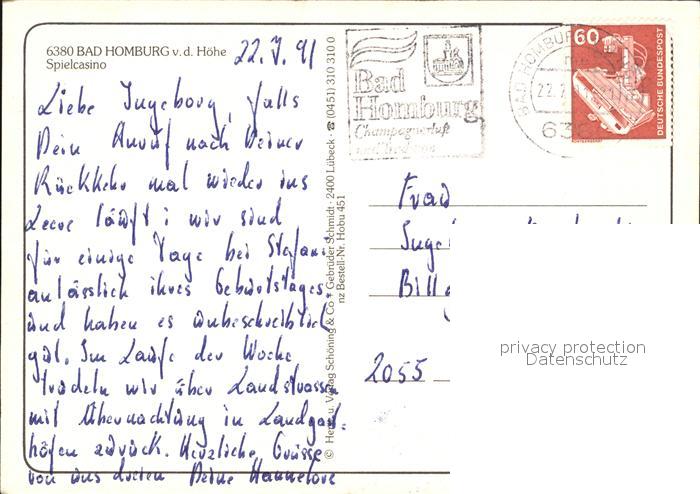 6380 BAD HOMBURG v. d. Höhe
Spielcasino
22.7.91
Liebe Ingeborg, falls
Dein Anruf nach Deiner
Rückkehr mal wieder ins
Leere läuft: wir sind
für einige Tage bei Stefanie
anlässlich ihres Geburtstages
und haben es unbeschreiblich
gut. Im Laufe der Woche
trudeln wir über Landstrassen
mit Übernachtung in Landgast-
höfen zurück. Herzliche Grüsse
von uns dreien Deine Hannelore
© Herst. u. Verlag Schöning & Co + Gebrüder Schmidt · 2400 Lübeck ☎ (0451) 310 310 0
nz Bestell-Nr. Hobu 451
Bad
Homburg
Champagnerluft
BAD HOMBURG
22.7.
60
DEUTSCHE BUNDESPOST
Frau
2055
privacy protection
Datenschutz